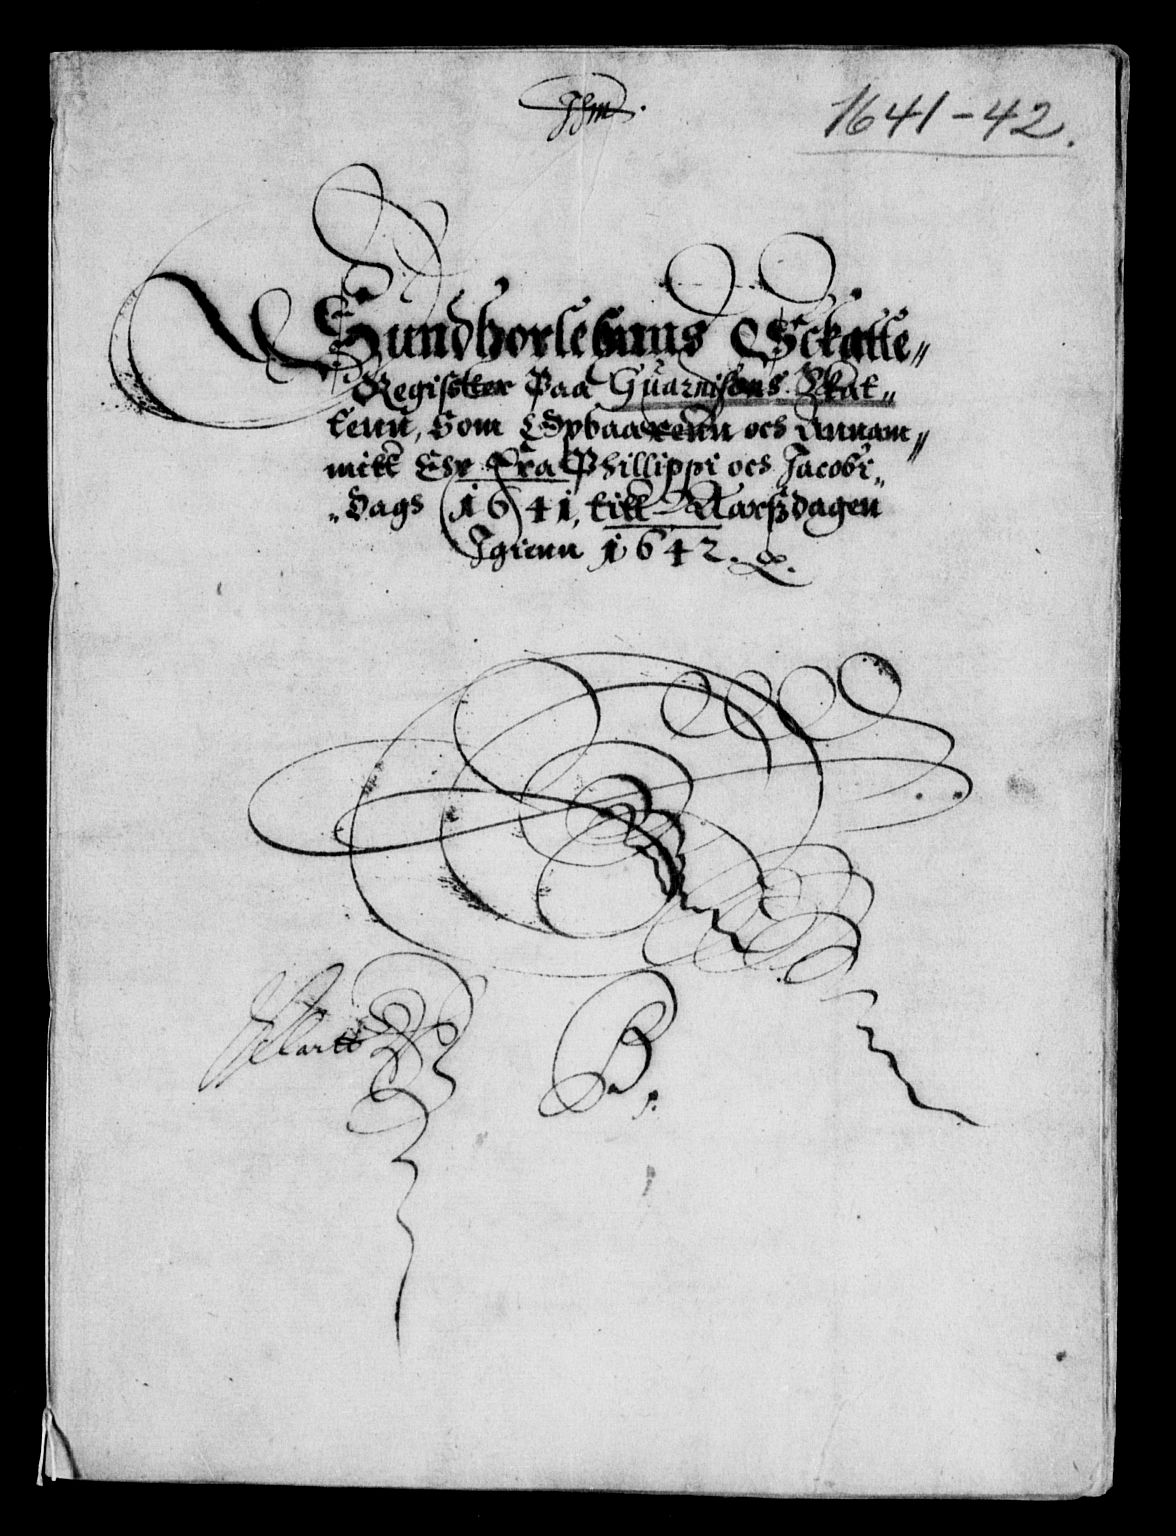 1641-42.
Sundhorlehnns Sckatte„
Regisster Paa Guarnisons Skat„
tenn, Som Opbaarenn och Annam„
mitt Ehr fra Phillippi och Jacobi„
„dags 1641, till Aarsdagen
Igienn 1642.
B.